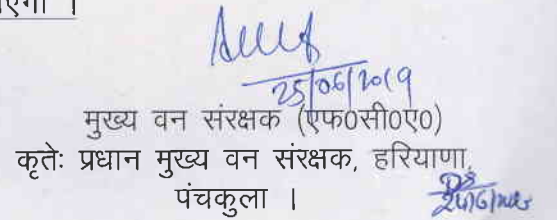 जाएगा ।
25/06/2019
मुख्य वन संरक्षक (एफ0सी0ए0)
कृतेः प्रधान मुख्य वन संरक्षक, हरियाणा,
पंचकुला ।